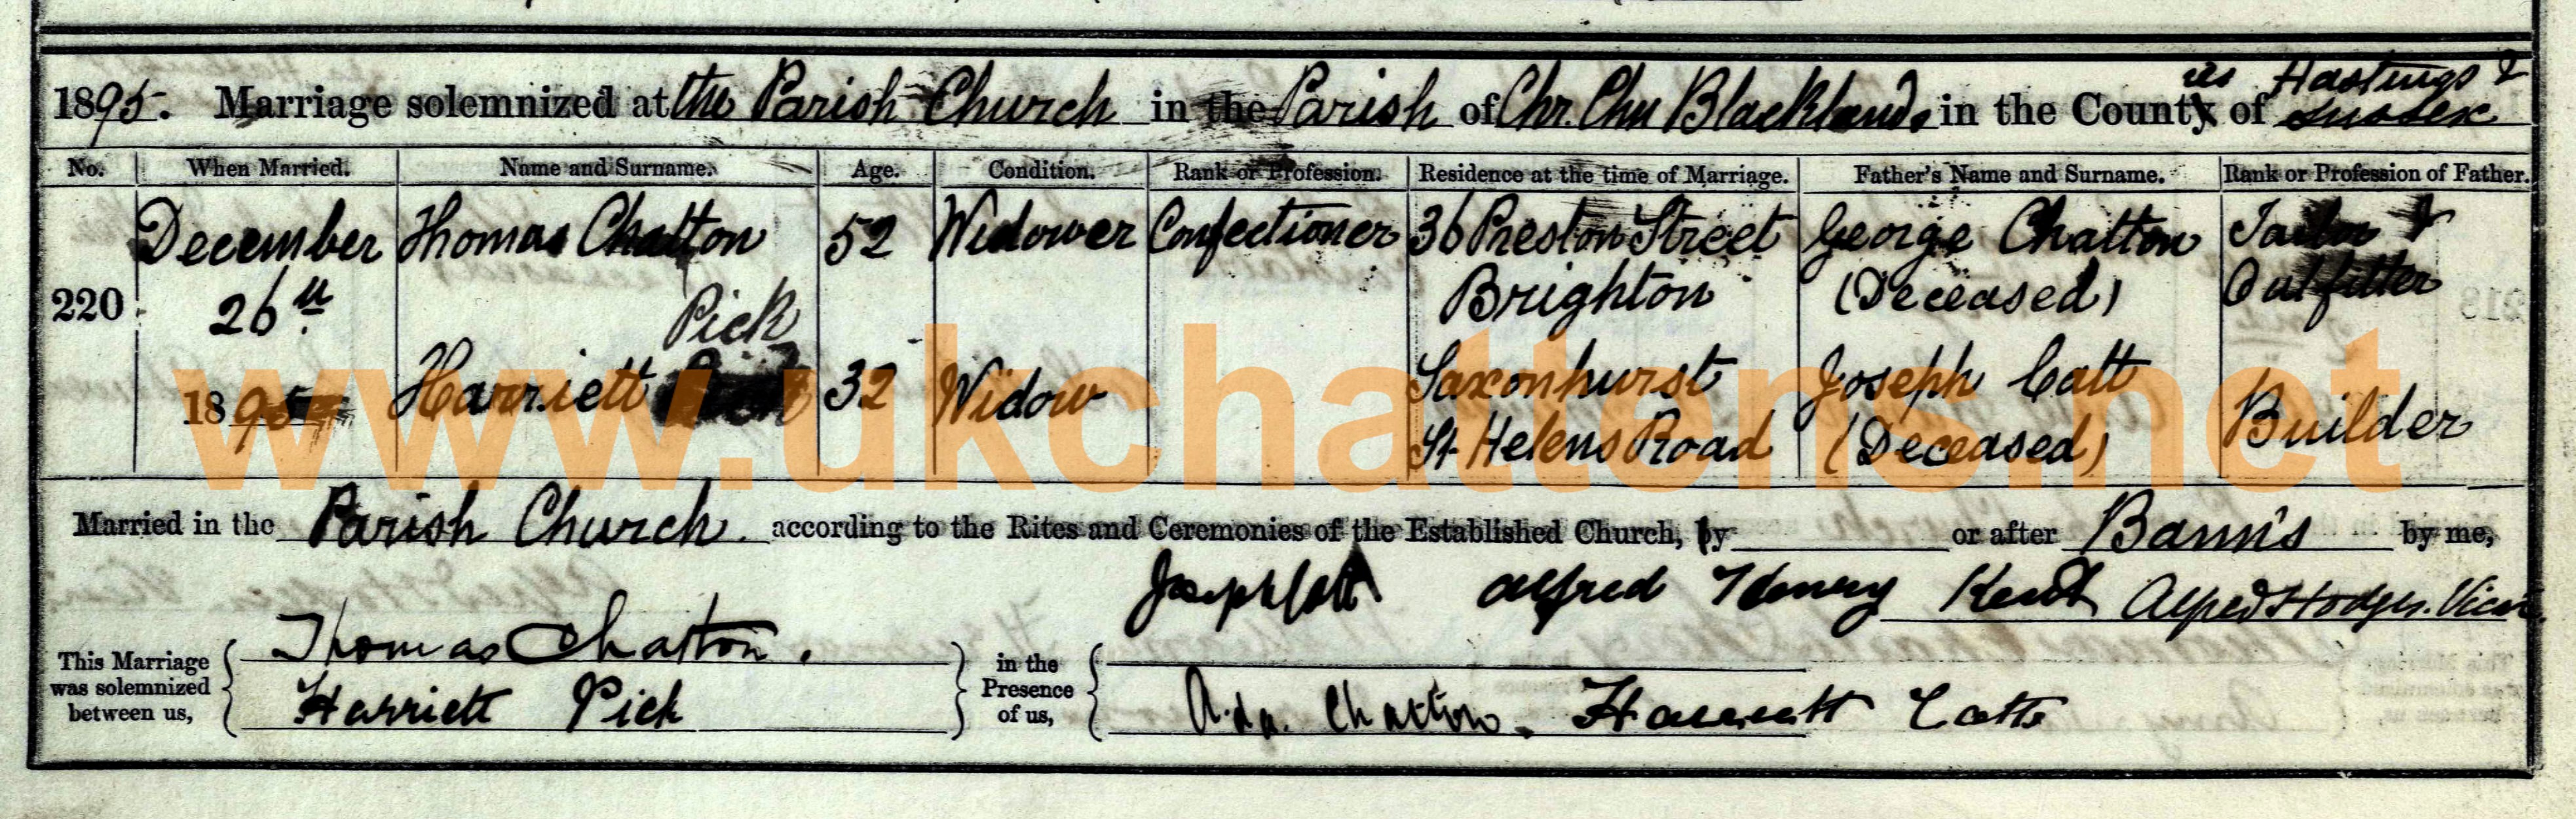 1895. Marriage solemnized at the Parish Church in the Parish of Chr. Chu Blacklands in the Counties of Hastings & Sussex
No. When Married. Name and Surname. Age. Condition. Rank or Profession. Residence at the time of Marriage. Father's Name and Surname. Rank or Profession of Father.
December Thomas Chatton 52 Widower Confectioner 36 Preston Street George Chatton Tailor &
220 26th Pick Brighton (Deceased) Outfitter
1895 Harriett 32 Widow Saxonhurst Joseph Catt Builder
St Helens Road (Deceased)
www.ukchattens.net
Married in the Parish Church. according to the Rites and Ceremonies of the Established Church, by or after Banns by me,
Joseph Catt Alfred Henry Kent Alfred Hodges. Vicar.
This Marriage was solemnized between us, Thomas Chatton. in the Presence of us,
Harriett Pick Ada. Chatton. Harriett Catt